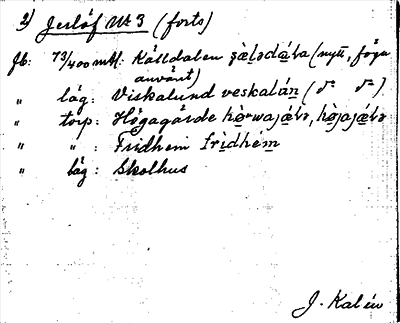 2) Jerlöf Nr 3 (forts)
Jb: 73/400 mtl: Källdalen şæ̀lədàɫa (nytt, föga
använt)
" läg: Viskalund veskalán (d:o d:o)
" torp: Högagärde hø̀rwajæ̀ɫə, hø̀jajæ̀ɫə
" " : Fridhem fridhém
" läg: Skolhus
J. Kalén